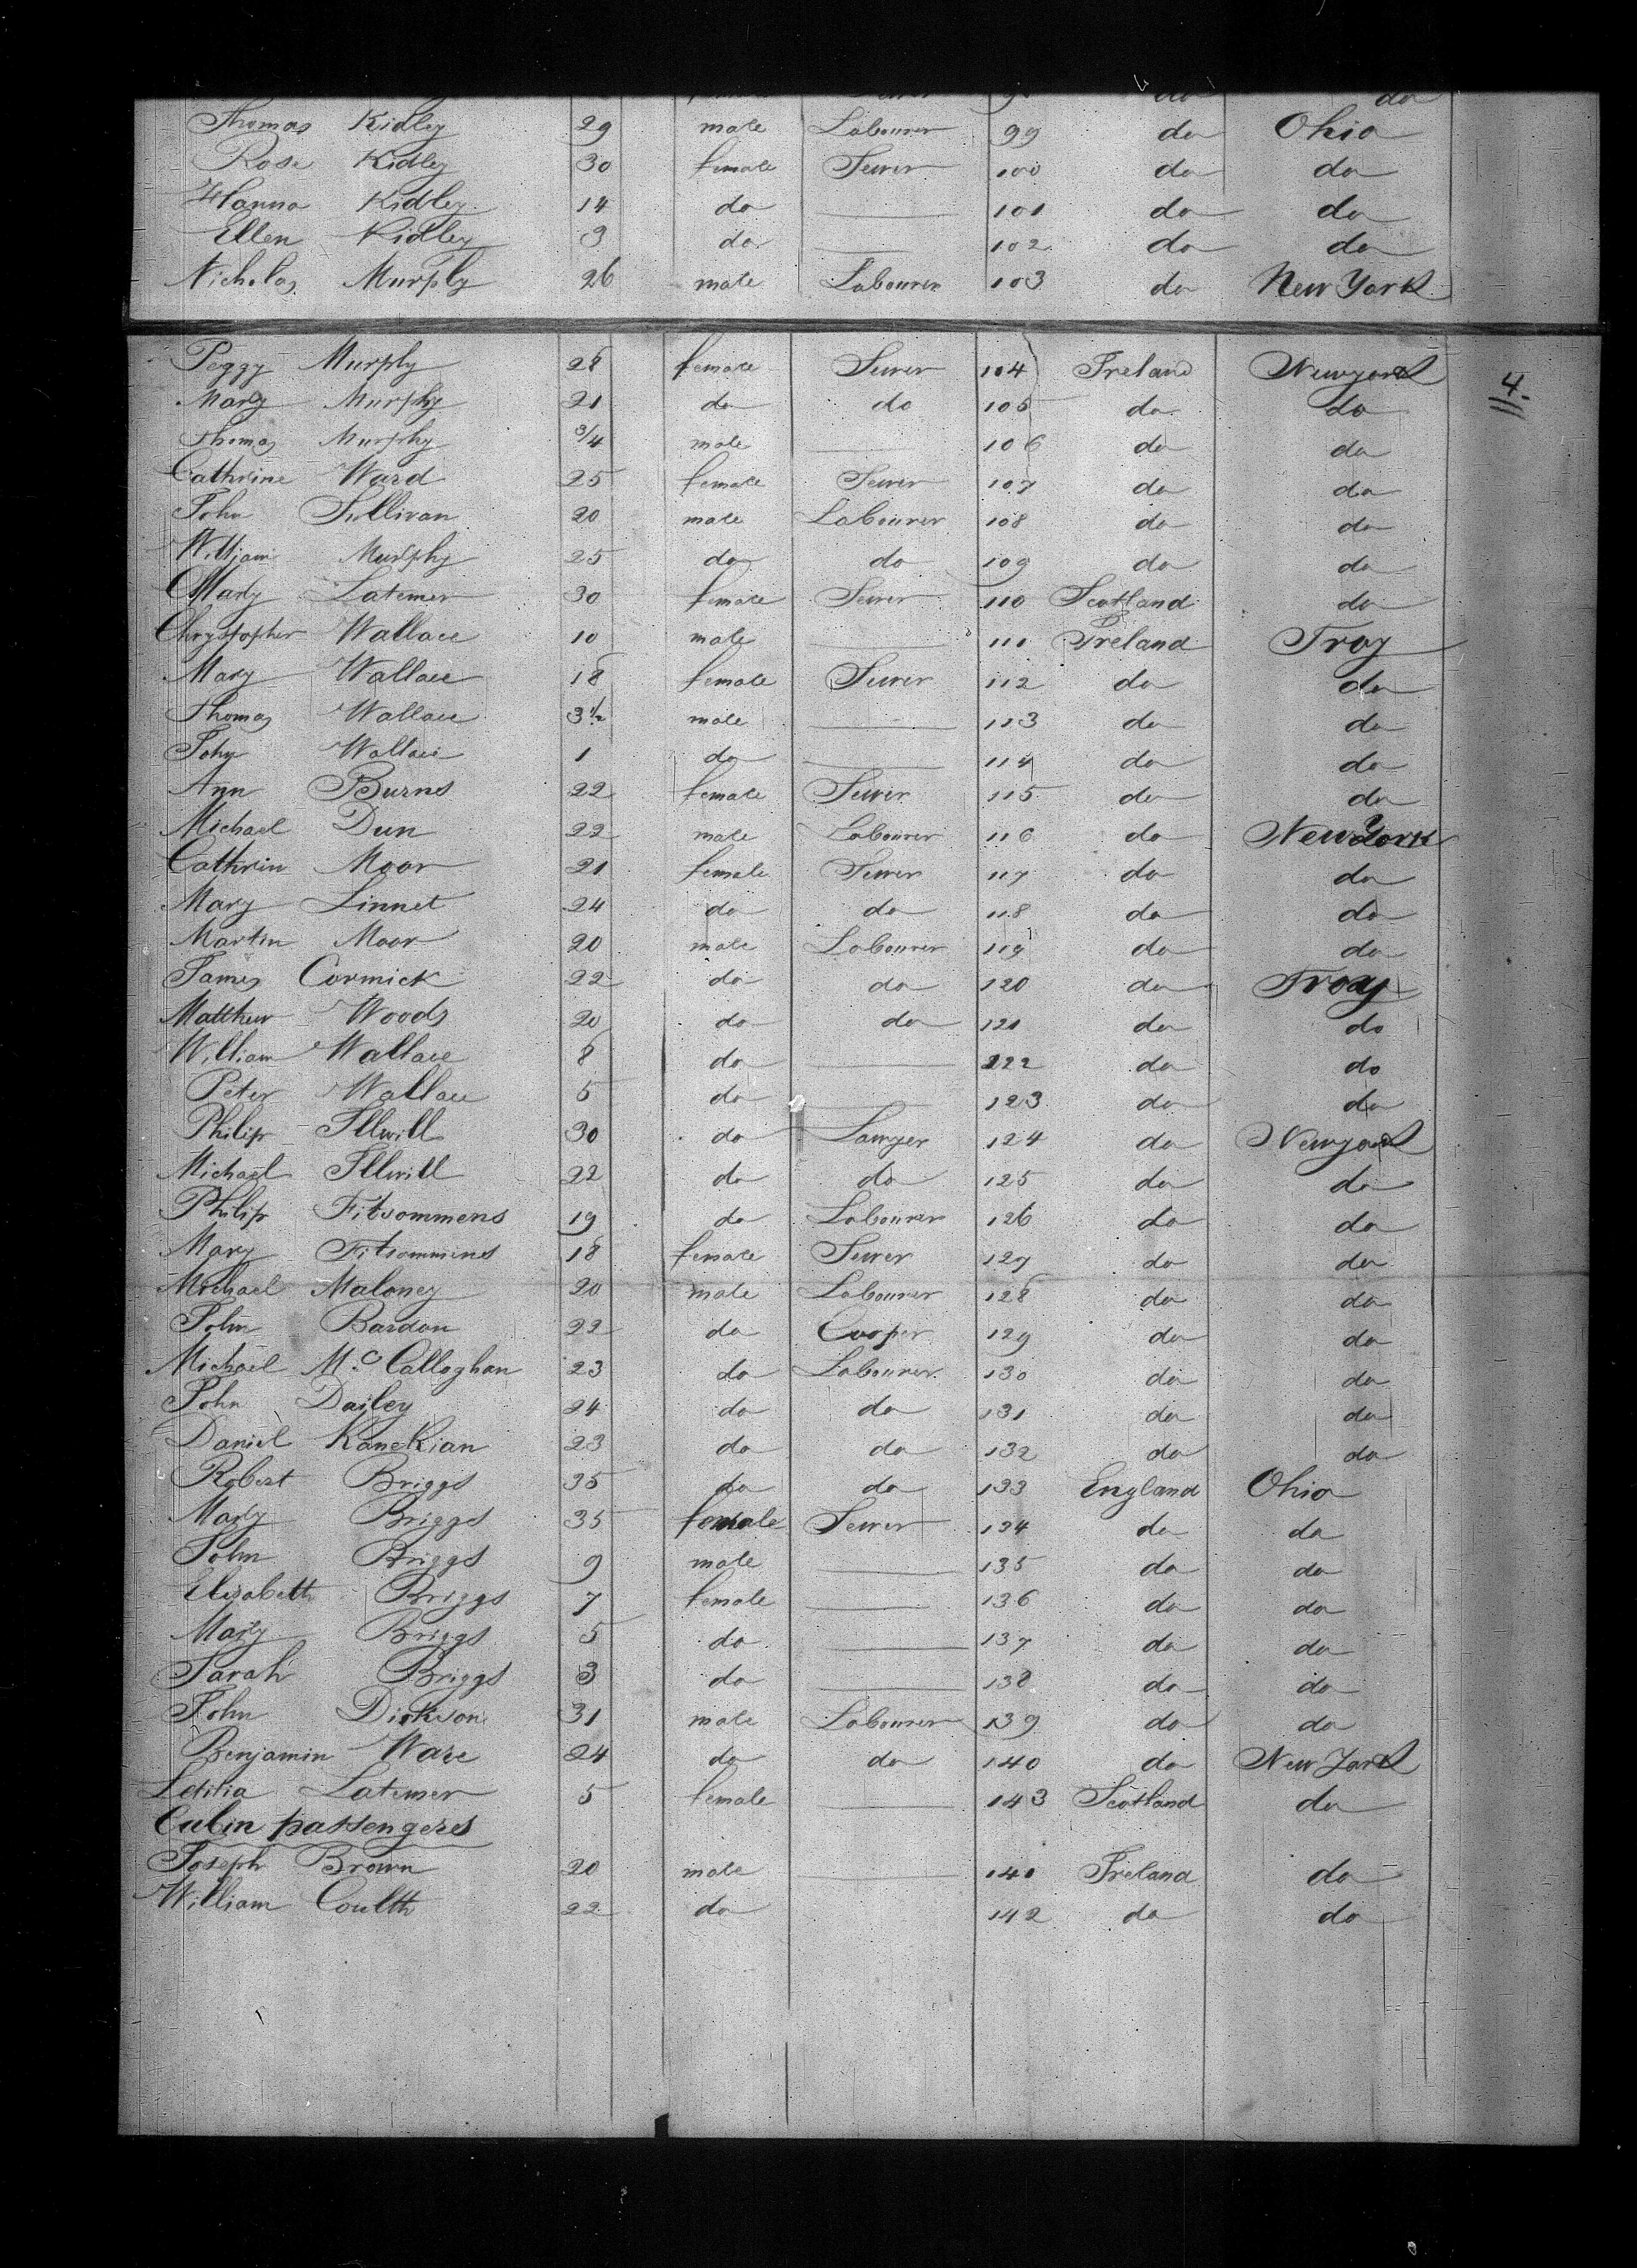 do do
Thomas Kidley 29 male Labourer 99 do Ohio
Rose Kidley 30 female Sewer 100 do do
Hanna Kidley 14 do 101 do do
Ellen Kidley 9 do 102 do do
Nicholas Murphy 26 male Labourer 103 do New York
Peggy Murphy 28 female Sewer 104 Ireland Newyork 4.
Mary Murphy 21 do do 105 do do
Thomas Murphy 3/4 male 106 do do
Cathrine Ward 25 female Sewer 107 do do
John Sullivan 20 male Labourer 108 do do
William Murphy 25 do do 109 do do
Mary Latemer 30 female Sewer 110 Scotland do
Chrystopher Wallace 10 male 111 Ireland Troy
Mary Wallace 18 female Sewer 112 do do
Thomas Wallace 3½ male 113 do do
John Wallace 1 do 114 do do
Ann Burns 22 female Sewer 115 do do
Michael Dun 22 male Labourer 116 do New York
Cathrin Moor 21 female Sewer 117 do do
Mary Linnet 24 do do 118 do do
Martin Moor 20 male Labourer 119 do do
James Cormick 22 do do 120 do Troy
Matthew Woods 20 do do 121 do do
William Wallace 8 do 122 do do
Peter Wallace 5 do 123 do do
Philip Illwill 30 do Sawyer 124 do Newyork
Michael Illwill 22 do do 125 do do
Philip Fitsommens 19 do Labourer 126 do do
Mary Fitsommens 18 female Sewer 127 do do
Michael Maloney 20 male Labourer 128 do do
John Bardon 22 do Cooper 129 do do
Michael Mc Calloghan 23 do Labourer 130 do do
John Dailey 24 do do 131 do do
Daniel Kanekian 23 do do 132 do do
Robert Briggs 35 do do 133 England Ohio
Mary Briggs 35 female Sewer 134 do do
John Briggs 9 male 135 do do
Elisabeth Briggs 7 female 136 do do
Mary Briggs 5 do 137 do do
Sarah Briggs 3 do 138 do do
John Dickson 31 male Labourer 139 do do
Benjamin Ware 24 do do 140 do New York
Letitia Latemer 5 female 143 Scotland do
Cabin passengers
Joseph Brown 20 male 141 Ireland do
William Coulth 22 do 142 do do